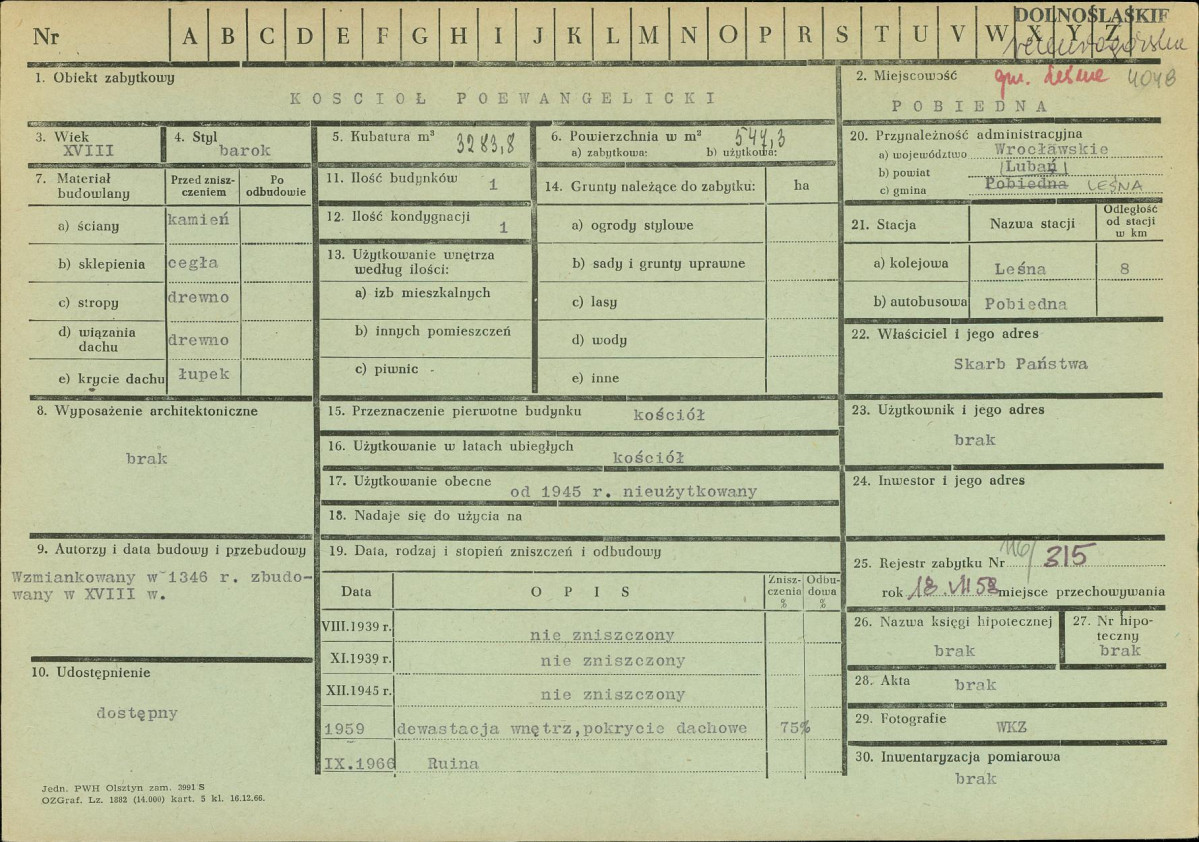 Nr A B C D E F G H I J K L M N O P R S T U V W X Y Z
DOLNOŚLĄSKIE
1. Obiekt zabytkowy
KOSCIOŁ POEWANGELICKI
2. Miejscowość gm. Leśna 4048
POBIEDNA
3. Wiek
XVIII
4. Styl
barok
5. Kubatura m³ 3283,8
6. Powierzchnia w m² 547,3
a) zabytkowa: b) użytkowa:
7. Materiał budowlany
Przed zniszczeniem
Po odbudowie
a) ściany kamień
b) sklepienia cegła
c) stropy drewno
d) wiązania dachu drewno
e) krycie dachu łupek
8. Wyposażenie architektoniczne
brak
9. Autorzy i data budowy i przebudowy
Wzmiankowany w 1346 r. zbudo-
wany w XVIII w.
10. Udostępnienie
dostępny
11. Ilość budynków 1
12. Ilość kondygnacji
1
13. Użytkowanie wnętrza
według ilości:
a) izb mieszkalnych
b) innych pomieszczeń
c) piwnic -
14. Grunty należące do zabytku: ha
a) ogrody stylowe
b) sady i grunty uprawne
c) lasy
d) wody
e) inne
15. Przeznaczenie pierwotne budynku kościół
16. Użytkowanie w latach ubiegłych
kościół
17. Użytkowanie obecne
od 1945 r. nieużytkowany
18. Nadaje się do użycia na
19. Data, rodzaj i stopień zniszczeń i odbudowy
Data OPIS Zniszczenia % Odbudowa %
VIII.1939 r. nie zniszczony
XI.1939 r. nie zniszczony
XII.1945 r. nie zniszczony
1959 dewastacja wnętrz,pokrycie dachowe 75%
IX.1966 Ruina
20. Przynależność administracyjna
a) województwo Wrocławskie
b) powiat Lubań
c) gmina Pobiedna LEŚNA
21. Stacja Nazwa stacji Odległość od stacji w km
a) kolejowa Leśna 8
b) autobusowa Pobiedna
22. Właściciel i jego adres
Skarb Państwa
23. Użytkownik i jego adres
brak
24. Inwestor i jego adres
25. Rejestr zabytku Nr 116/315
rok 18.VII 58 miejsce przechowywania
26. Nazwa księgi hipotecznej
brak
27. Nr hipo-
teczny
brak
28. Akta brak
29. Fotografie WKZ
30. Inwentaryzacja pomiarowa
brak
Jedn. PWH Olsztyn zam. 3991 S
OZGraf. Lz. 1882 (14.000) kart. 5 kl. 16.12.66.